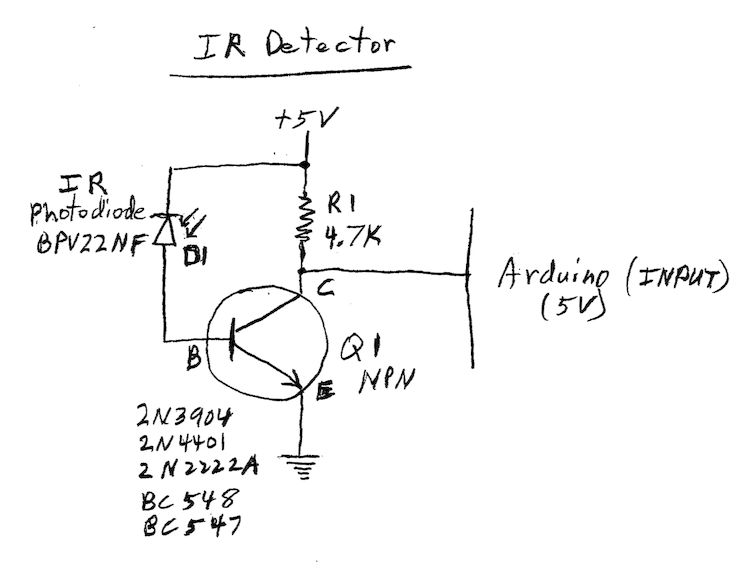 IR Detector
+5V
IR
Photodiode
BPV22NF
D1
R1
4.7K
C
Arduino (INPUT)
(5V)
B
Q1
NPN
E
2N3904
2N4401
2N2222A
BC548
BC547